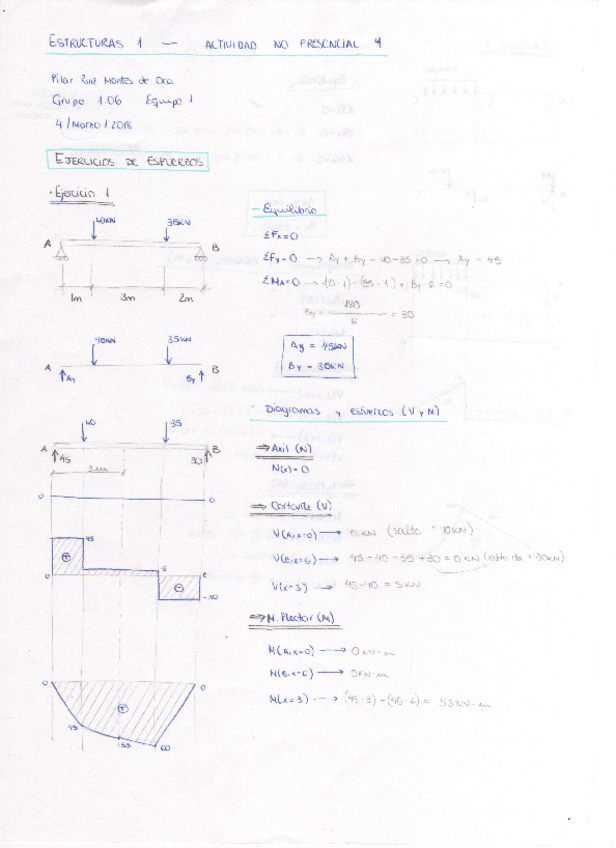 ESTRUCTURAS 1 — ACTIVIDAD NO PRESENCIAL 4
Pilar Ruiz Montes de Oca.
Grupo 1.06 Equipo 1
4/Marzo/2018
EJERCICIOS DE ESFUERZOS
· Ejercicio 1
40KN 35KN
A B
1m 3m 2m
40KN 35KN
A B
Ay By
40 35
A B
45 30
3m
0 0
45
0 5 0
-30
0 0
45 55 60
- Equilibrio
ΣFx=0
ΣFy=0 → Ay + By - 40 - 35 = 0 → Ay = 45
ΣMA=0 → (40·1) - (35·4) + By 6 = 0
By = 180/6 = 30
Ay = 45KN
By = 30KN
- Diagramas y esfuerzos (V y M)
⇒ Axil (N)
N(x) = 0
⇒ Cortante (V)
V(A, x=0) → 0KN
V(B, x=6) → 45 - 40 - 35 + 30 = 0KN (salto de +30KN)
V(x=3) → 45-40 = 5KN
⇒ M. Flector (M)
M(A, x=0) → 0KN·m
M(B, x=6) → 0KN·m
M(x=3) → (45·3) - (40·2) = 55KN·m